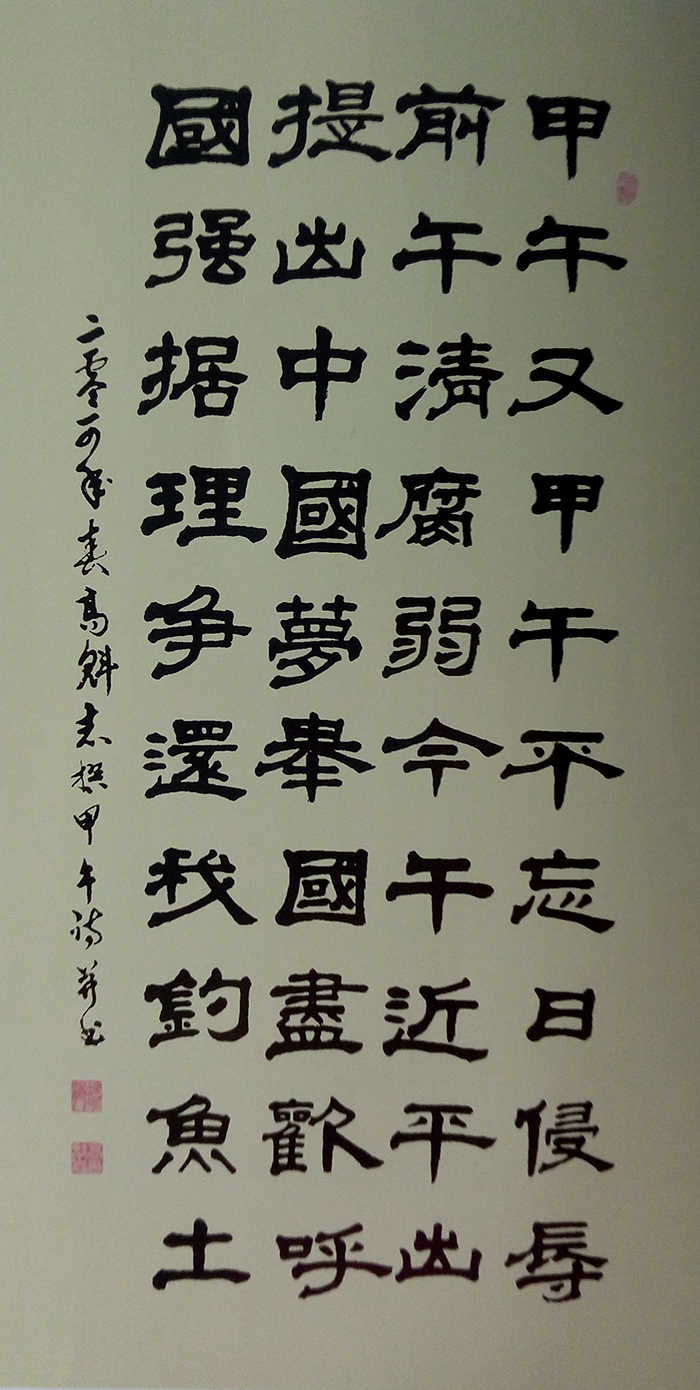 甲午又甲午不忘日侵辱
前午清腐弱今午近平出
提出中國夢舉國盡歡呼
國强据理争還我釣魚土
二零一四年春高魁志撰甲午诗并书